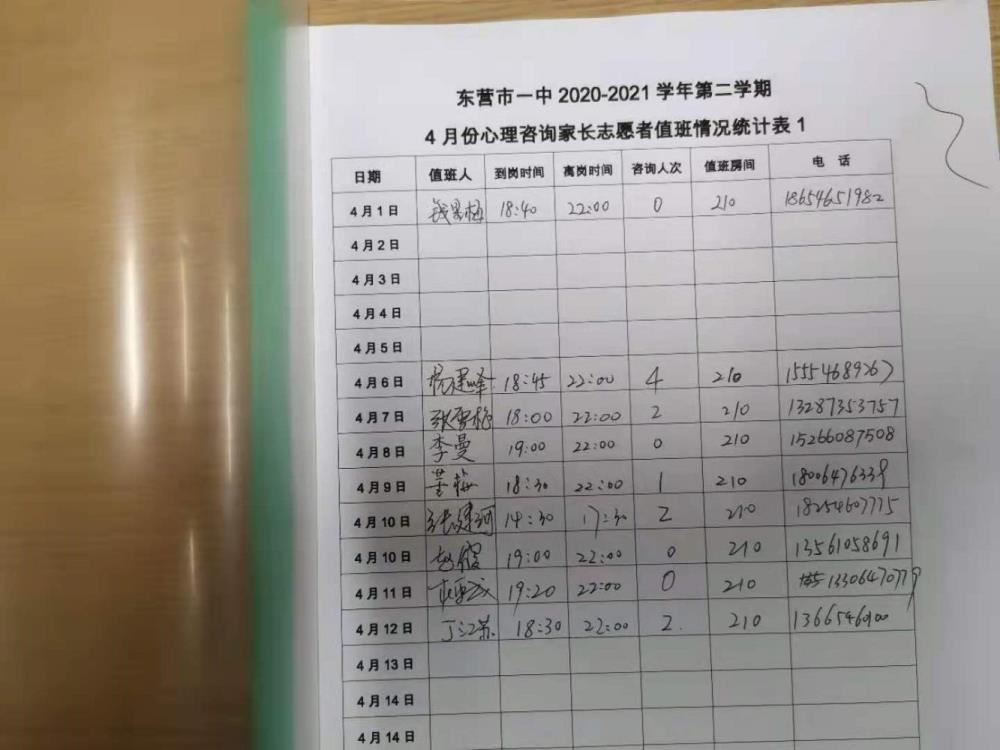 东营市一中 2020-2021 学年第二学期
4 月份心理咨询家长志愿者值班情况统计表 1
日期 值班人 到岗时间 离岗时间 咨询人次 值班房间 电 话
4月1日 18:40 22:00 0 210 18654651982
4月2日
4月3日
4月4日
4月5日
4月6日 杨建峰 18:45 22:00 4 210 15554689267
4月7日 张雪梅 18:00 22:00 2 210 13287353757
4月8日 李曼 19:00 22:00 0 210 15266087508
4月9日 董梅 18:30 22:00 1 210 18006476339
4月10日 14:30 17:30 2 210 18254607775
4月10日 19:00 22:00 0 210 13561058691
4月11日 19:20 22:00 0 210 13306470779
4月12日 丁江苏 18:30 22:00 2. 210
4月13日
4月14日
4月14日